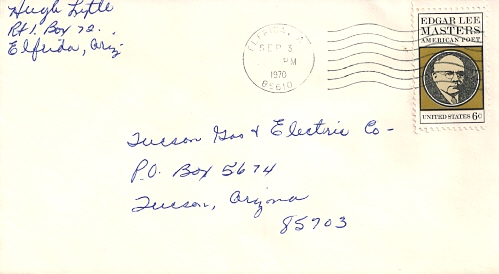 Hugh Little
Rt 1. Box 72.
Elfrida, Ariz
ELFRIDA, A
SEP 3
PM
1970
85610
EDGAR LEE
MASTERS
AMERICAN POET
UNITED STATES 6c
Tucson Gas & Electric Co-
P.O. Box 5674
Tucson, Arizona
85703